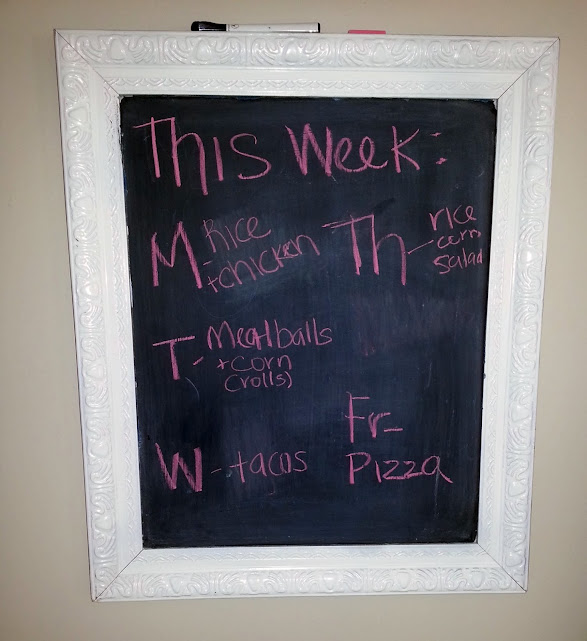 This Week:
M Rice
+chicken
T- Meatballs
+corn
(rolls)
W-tacos
Th- rice
corn
salad
Fr-
Pizza